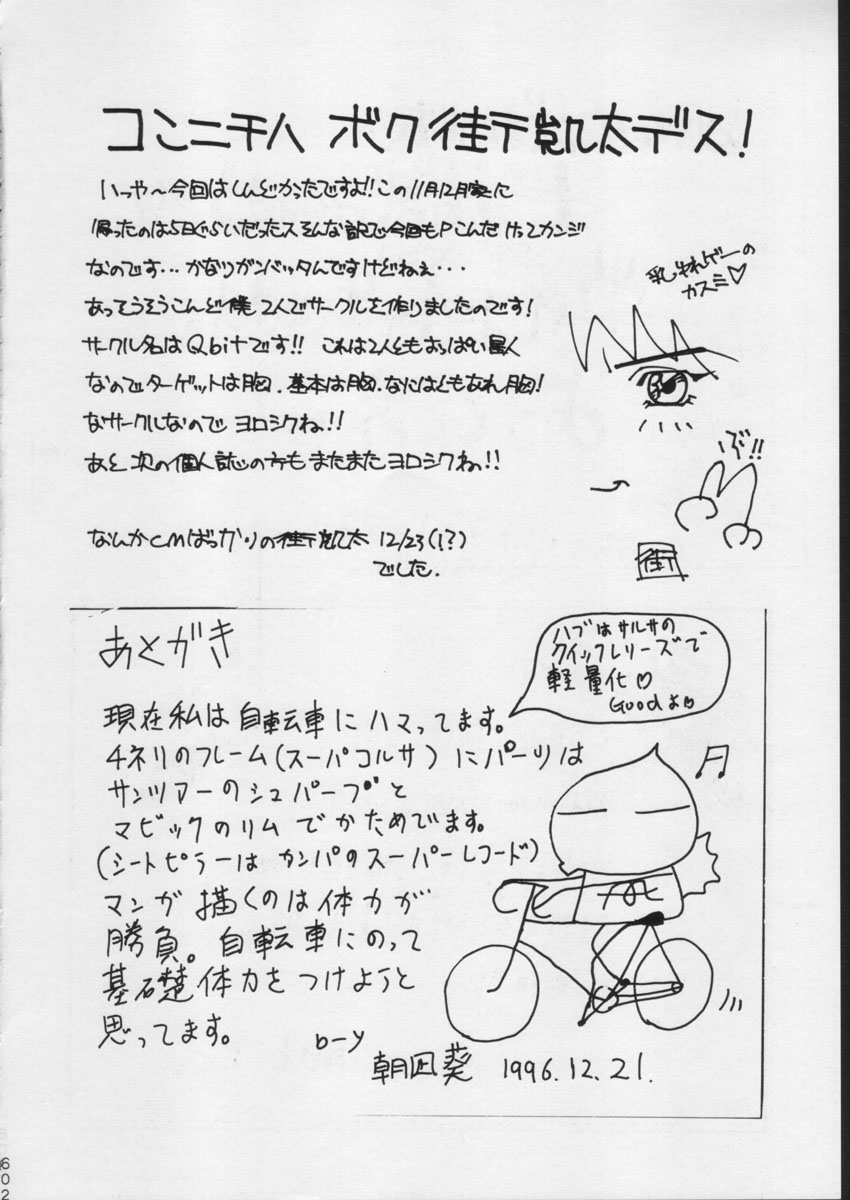 コンニチハ ボク街凱太デス!
いっや〜今回はしんどかったですよ!!この11月12月家に
帰ったのは5日ぐらいだったスそんな訳で今回もPこんだけってカンジ
なのです…かなりガンバッタんですけどねぇ・・・
あってそうそうこんど僕2人でサークルを作りましたのです!
サークル名はQbitです!! これは2人ともおっぱい星人
なのでターゲットは胸.基本は胸.なにはともあれ胸!
なサークルなのでヨロシクね!!
あと次の個人誌の方もまたまたヨロシクねっ!!
なんかCMばっかりの街凱太 12/23(!?)
でした.
乳ゆれゲーの
カスミ♡
ぶ!!
街
あとがき
ハブはサルサの
クイックレリーズで
軽量化♡
Goodよ♡
現在私は自転車にハマってます。
チネリのフレーム(スーパコルサ)にパーツは
サンツアーのシュパーブと
マビックのリムでかためてます。
(シートピラーはカンパのスーパーレコード)
マンガ描くのは体力が
勝負。自転車にのって
基礎体力をつけようと
思ってます。
b-y
朝凪葵 1996.12.21.
602